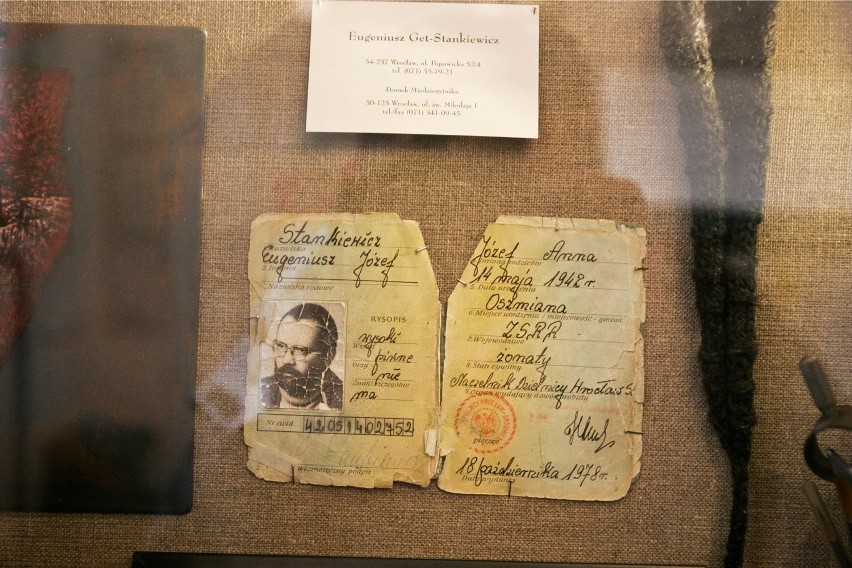 Eugeniusz Get-Stankiewicz
54-237 Wrocław, ul. Popowicka 52/4
tel. (071) 55-79-21
Domek Miedziorytnika
50-125 Wrocław, ul. św. Mikołaja 1
tel./fax (071) 341-09-45
Stankiewicz
1. Nazwisko
Eugeniusz Józef
2. Imiona
3. Nazwisko rodowe
RYSOPIS
wysoki
Wzrost
piwne
Oczy
nie
Znaki szczególne
ma
Nr ewid. 42051402752
Własnoręczny podpis
Józef Anna
4. Imiona rodziców
14 maja 1942 r.
5. Data urodzenia
Oszmiana
6. Miejsce urodzenia / miejscowość - gmina
ZSRR
7. Województwo
żonaty
8. Stan cywilny
Naczelnik Dzielnicy Wrocław
9. Organ wydający dowód osobisty
pieczęć
18 października 1978 r.
Data wydania